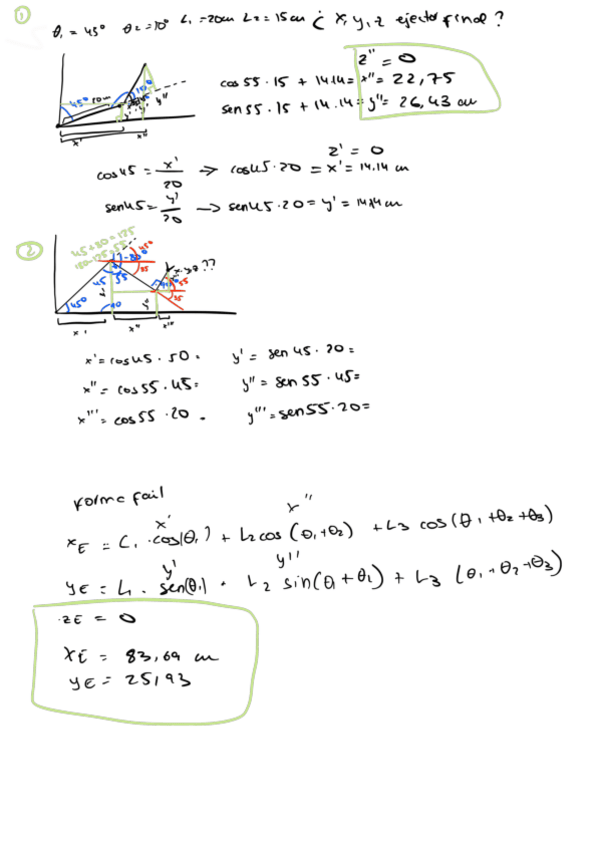 ① θ₁ = 45° θ₂ = 10° L₁ = 20cm L₂ = 15cm ¿ x, y, z ejector final ?
z'' = 0
cos 55 · 15 + 14.14 = x'' = 22,75
sen 55 · 15 + 14.14 = y'' = 26,43 cm
45°
x' x''
z' = 0
cos 45 = x'/20 → cos 45 · 20 = x' = 14.14 cm
sen 45 = y'/20 → sen 45 · 20 = y' = 14.14 cm
②
45 + 80 = 125
180 - 125 = 55
-80°
x y z ??
45 55
45°
x' x'' x'''
x' = cos 45 · 50 = y' = sen 45 · 20 =
x'' = cos 55 · 45 = y'' = sen 55 · 45 =
x''' = cos 55 · 20 = y''' = sen 55 · 20 =
forma fail
x' x''
x_E = L₁ · cos(θ₁) + L₂ cos (θ₁ + θ₂) + L₃ cos (θ₁ + θ₂ + θ₃)
y' y''
y_E = L₁ · sen(θ₁) + L₂ sin(θ₁ + θ₂) + L₃ (θ₁ + θ₂ + θ₃)
z_E = 0
x_E = 83,69 cm
y_E = 25,93